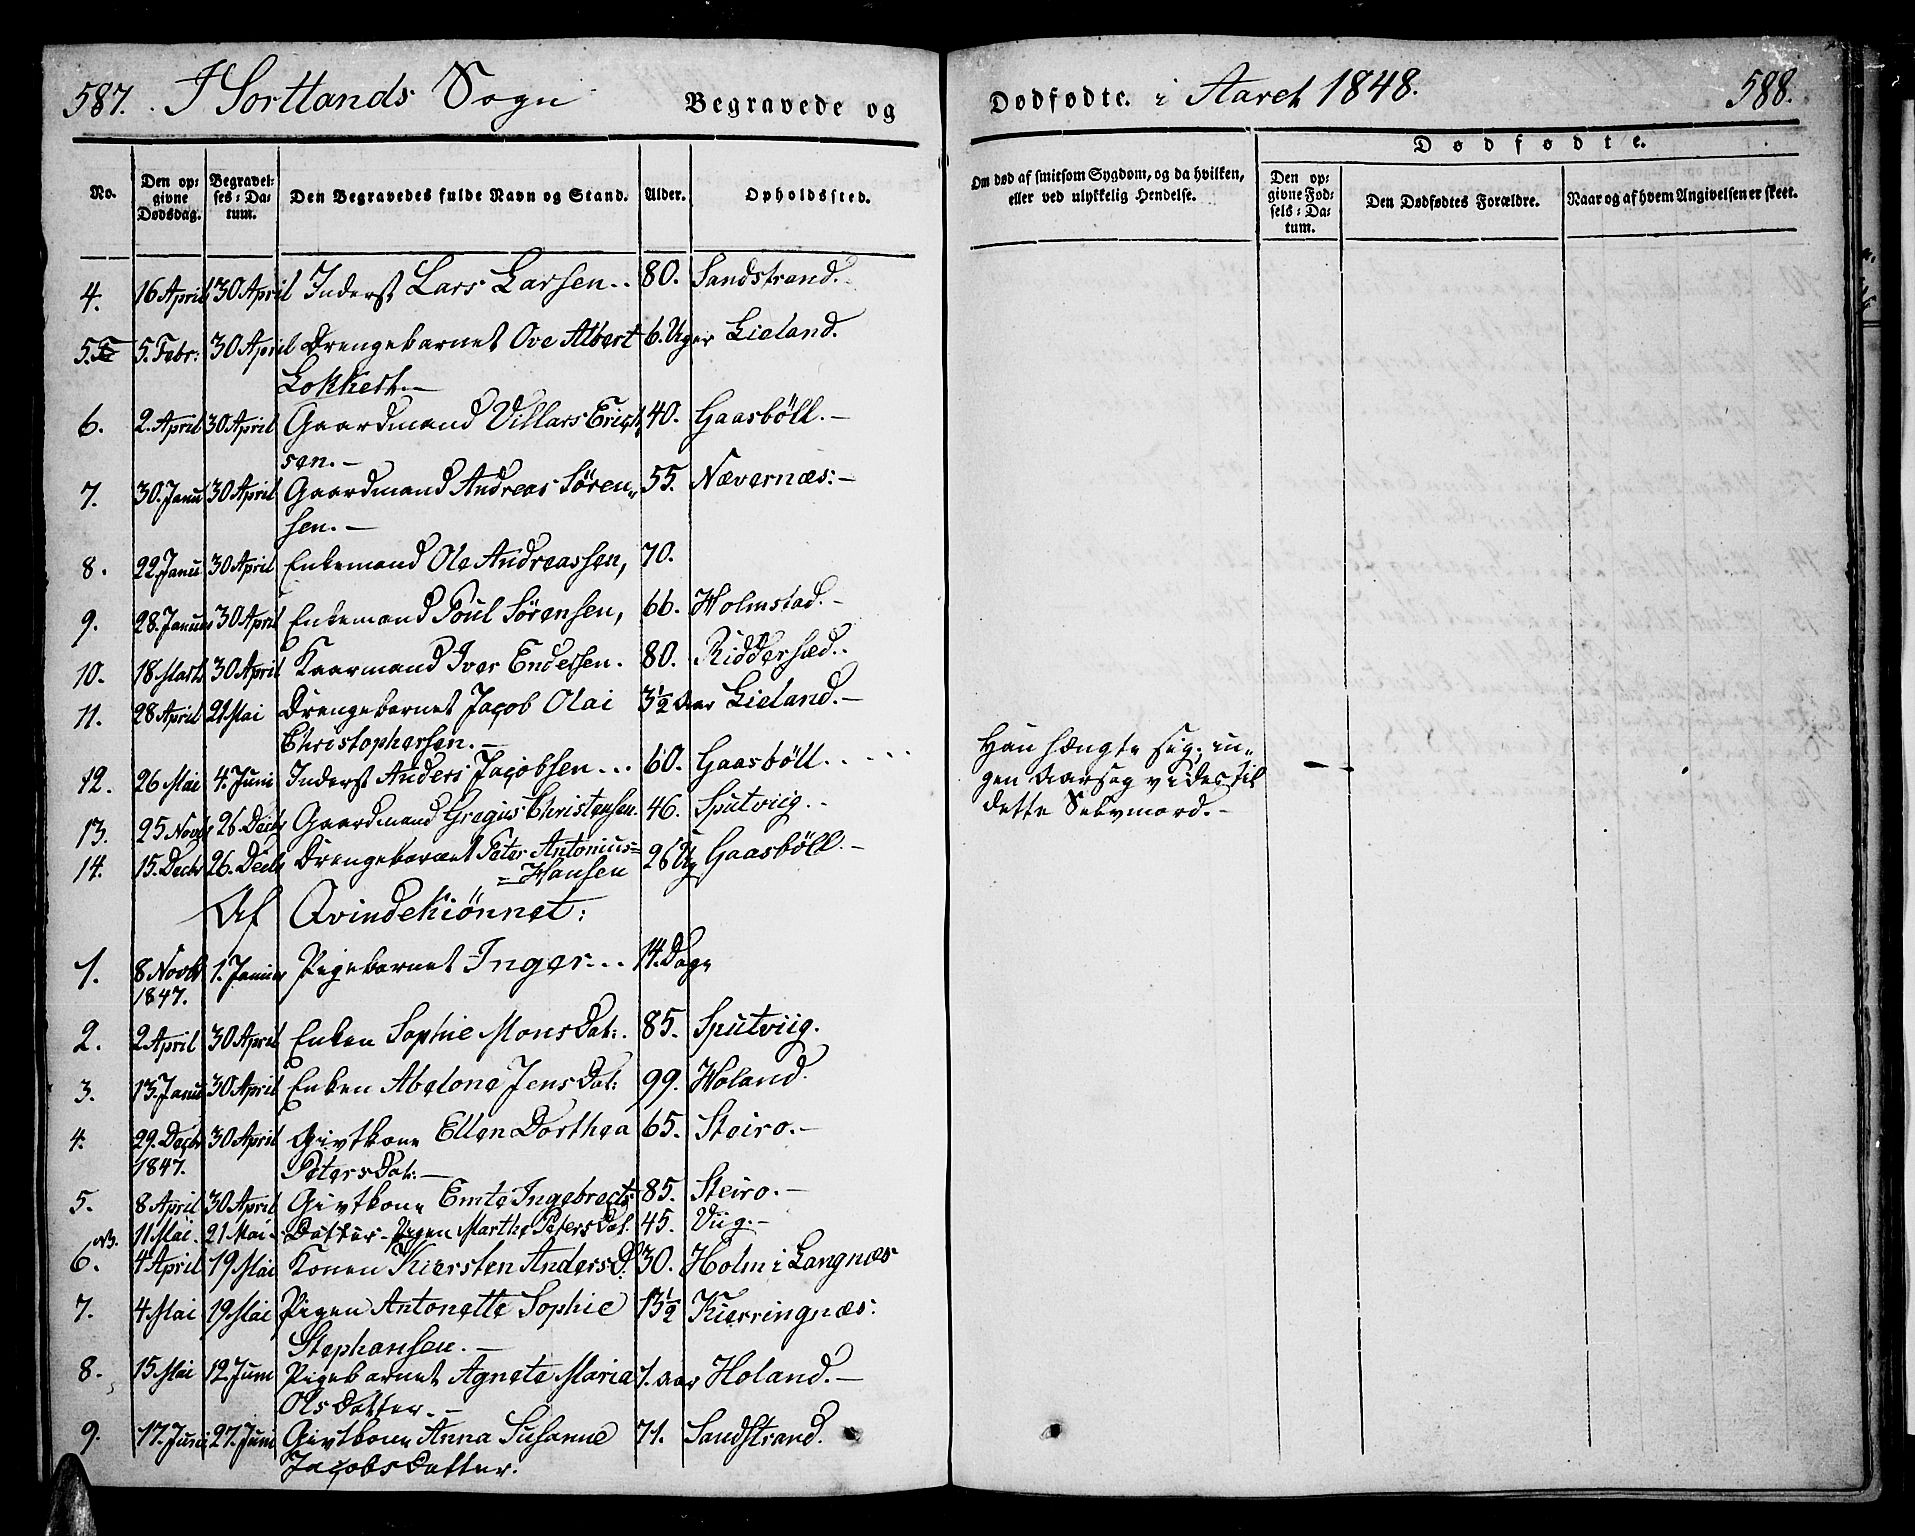 587. I Sortlands Sogn Begravede og
No. Den opgivne Dødsdag. Begravelses-Datum. Den Begravedes fulde Navn og Stand. Alder. Opholdssted.
4. 16 April 30 April Inderst Lars Larsen.. 80. Sandstrand.
5. 5. Febr: 30 April Drengebarnet Ove Albert 6. Uger Lieland.
Lokkert.-
6. 2. April 30 April Gaardmand Villars Erich 40. Gaasböll.-
sen.-
7. 30. Janu 30 April Gaardmand Andreas Sören„ 55. Nævernæs:-
sen.-
8. 22 Janu 30 April Enkemand Ole Andreassen, 70.
9. 28. Januar 30 April Enkemand Poul Sörensen, 66. Holmstad.-
10. 18 Marts 30 April Kaarmand Iver Endersen. 80. Riddersæd..
11. 28 April 21 Mai Drengebarnet Jacob Olai 3½ Aar Lieland.-
Christophersen.-
12. 26 Mai 4. Juni Inderst Anders Jacobsen... 60. Gaasböll....
13. 25 Novbr 26 Decbr Gaardmand Gregius Christensen. 46. Sputviig..
14. 15. Decbr 26. Decbr Drengebarnet Peter Antonius= 26 Ug Gaasböll.-
=Hansen
Af Qvindekiönnet:
1. 8 Novbr 1. Januar Pigebarnet Inger... 14. Dage
1847.
2. 2 April 30 April Enken Sophie MonsDat:. 85. Sputviig.
3. 13. Janu 30 April Enken Abelone JensDat: 99. Holand.
4. 29. Decbr 30 April Givtkone Ellen Dorthea 65. Steiro.-
1847. PetersDat:-
5. 8 April 30 April Givtkone Emte Ingebrects 85. Steiro.-
NB. 11 Mai. 21 Mai- Datter- Pigen Marthe PetersDat. 45. Viig.-
6. 4 April 19 Mai Konen Kiersten AndersD: 30. Holm i Langnæs
7. 4 Mai 19 Mai Pigen Antonette Sophie 13½ Kierringnæs:
Stephansen.-
8. 15 Mai 12. Juni Pigebarnet Agnete Maria 7. aar Holand.-
OlsDatter.-
9. 17. Juni 27. Juni Givtkone Anna Susanne 71. Sandstrand.
JacobsDatter.
Dødfødte. i Aaret 1848. 588.
Om død af smitsom Sygdom, og da hvilken, eller ved ulykkelig Hendelse.
Dødfødte.
Den opgivne Fødsels-Datum. Den Dødfødtes Forældre. Naar og af hvem Angivelsen er skeet.
Han hængte sig; in„
gen Aarsag vides til
dette Selvmord.-